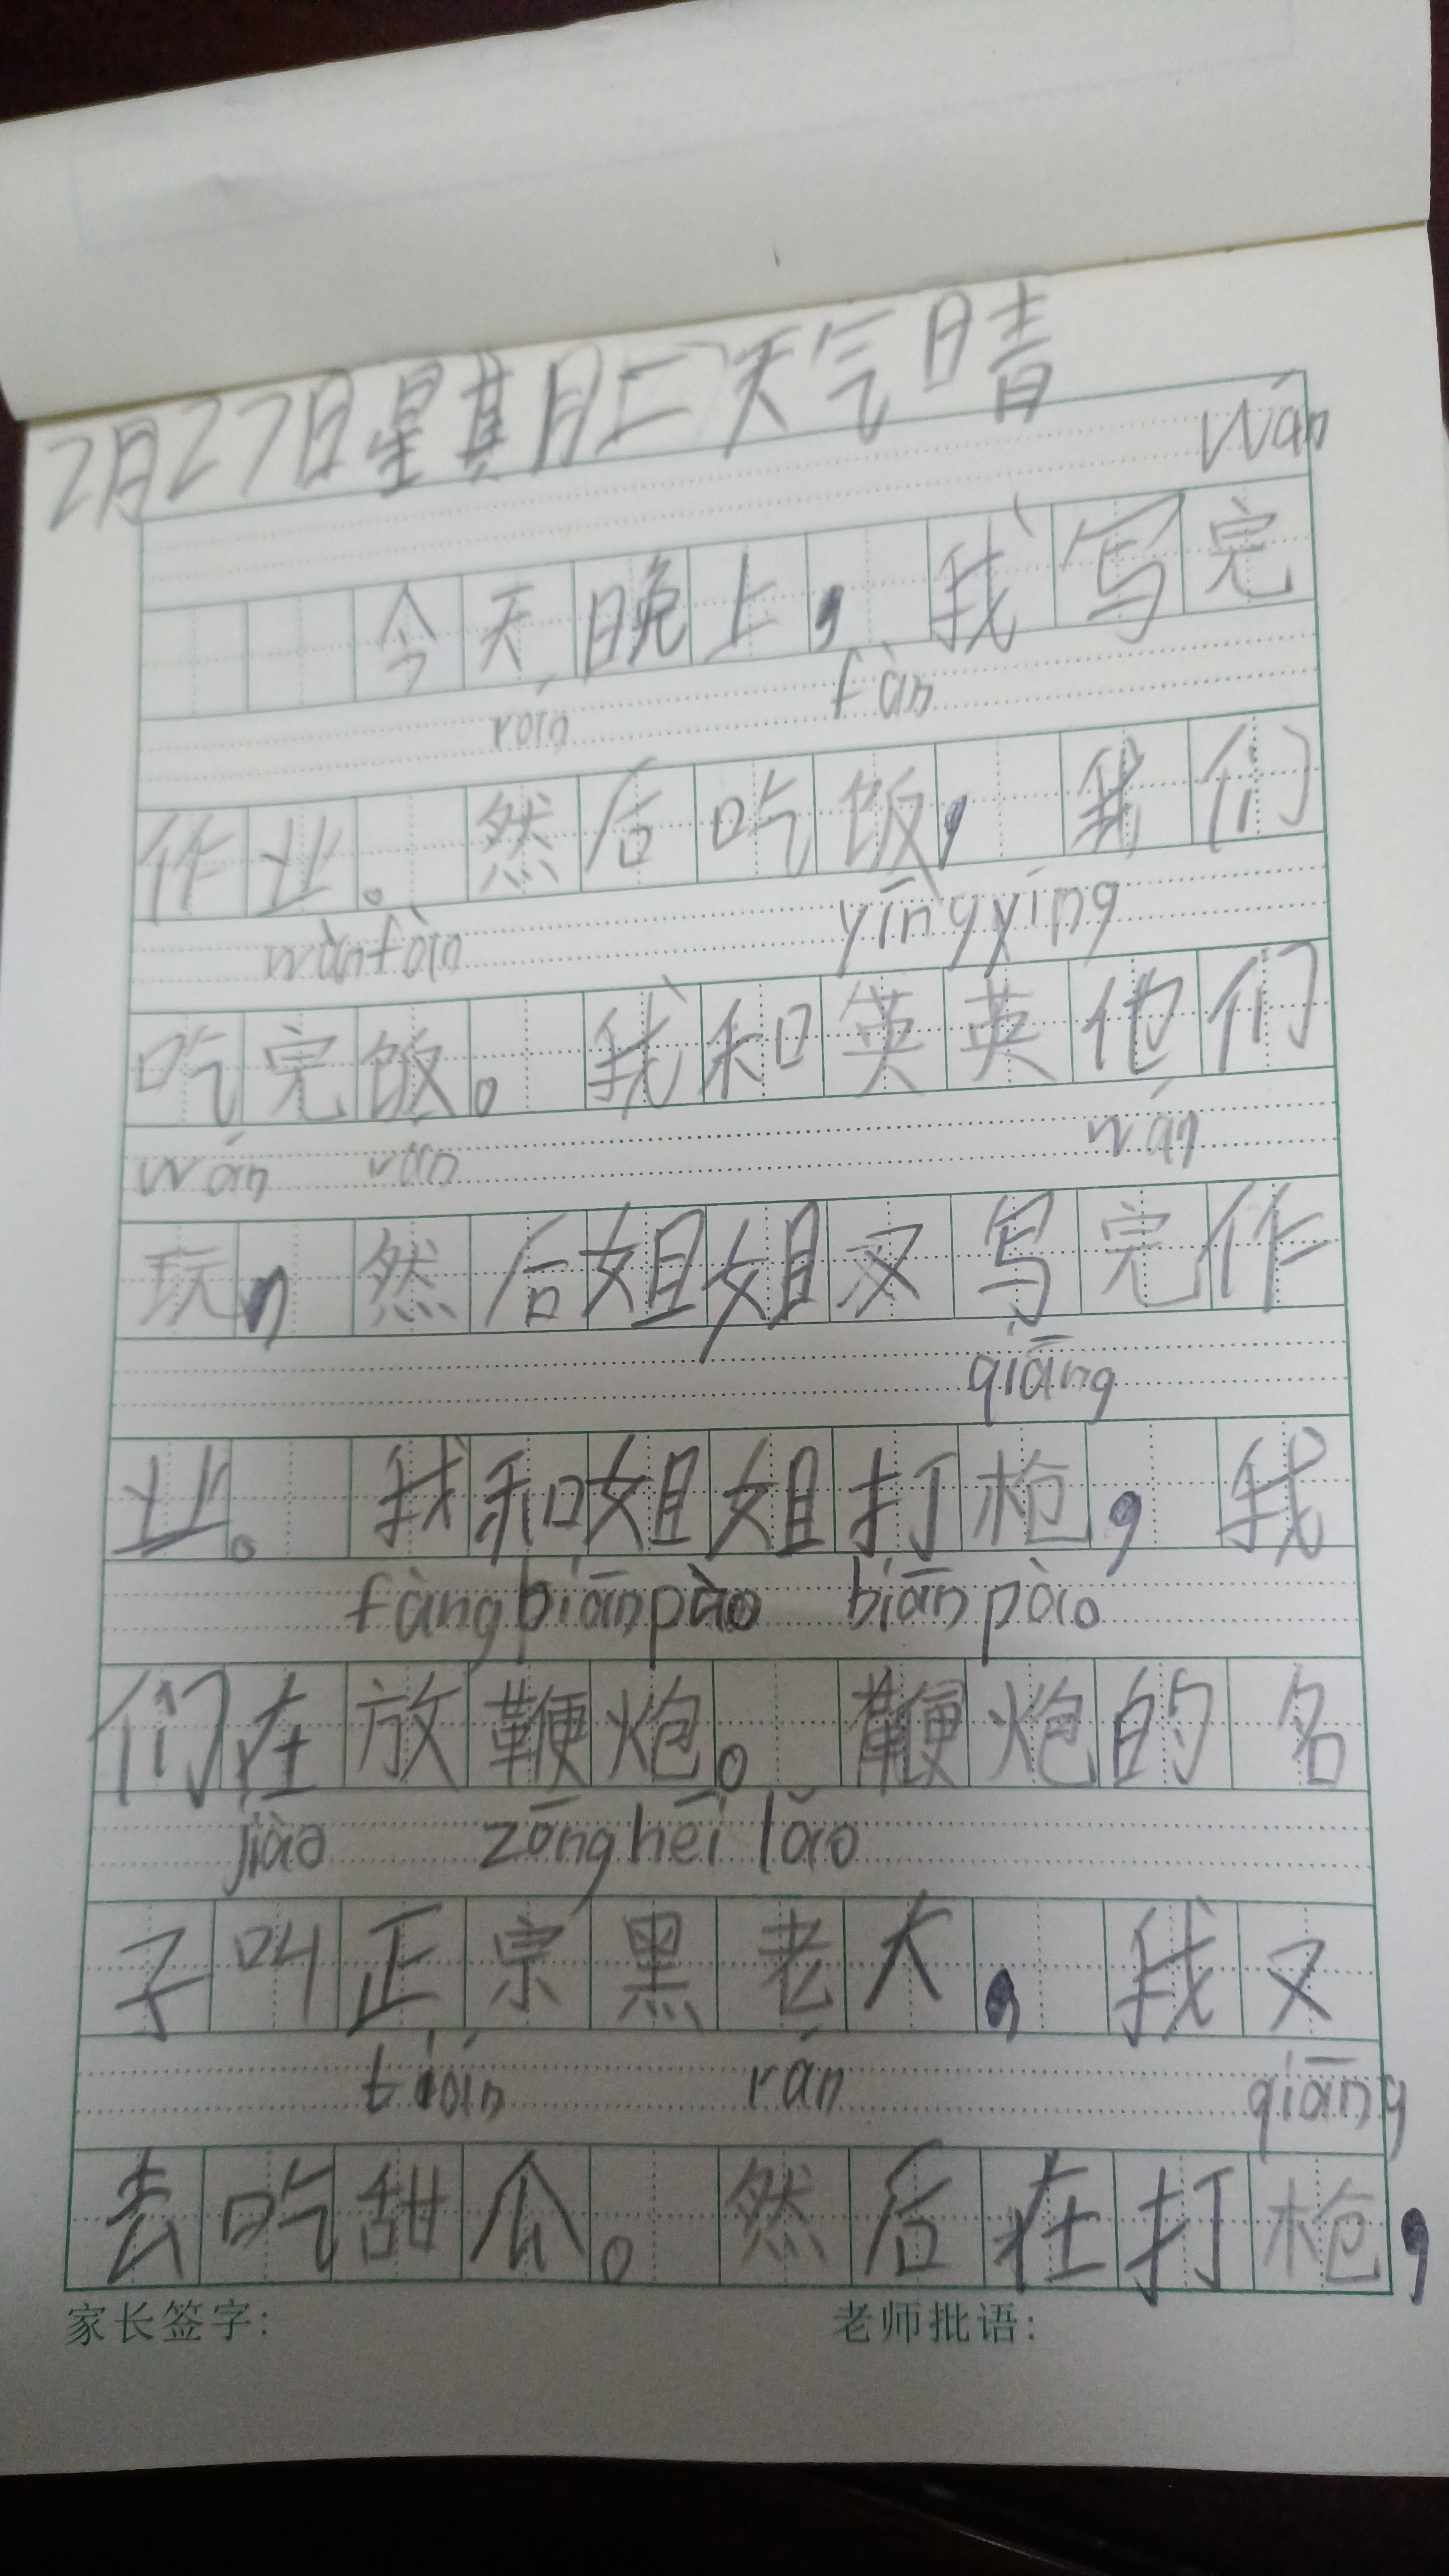 2月27日星期二天气晴
wán
今天晚上，我写完
rán fàn
作业。然后吃饭，我们
wánfàn yīngyíng
吃完饭。我和英英他们
wán rán wán
玩，然后姐姐又写完作
qiāng
业。我和姐姐打枪，我
fàngbiānpào biānpào
们在放鞭炮。鞭炮的名
jiào zōnghēi lǎo
子叫正宗黑老大，我又
tián rán qiāng
去吃甜瓜。然后在打枪，
家长签字： 老师批语：